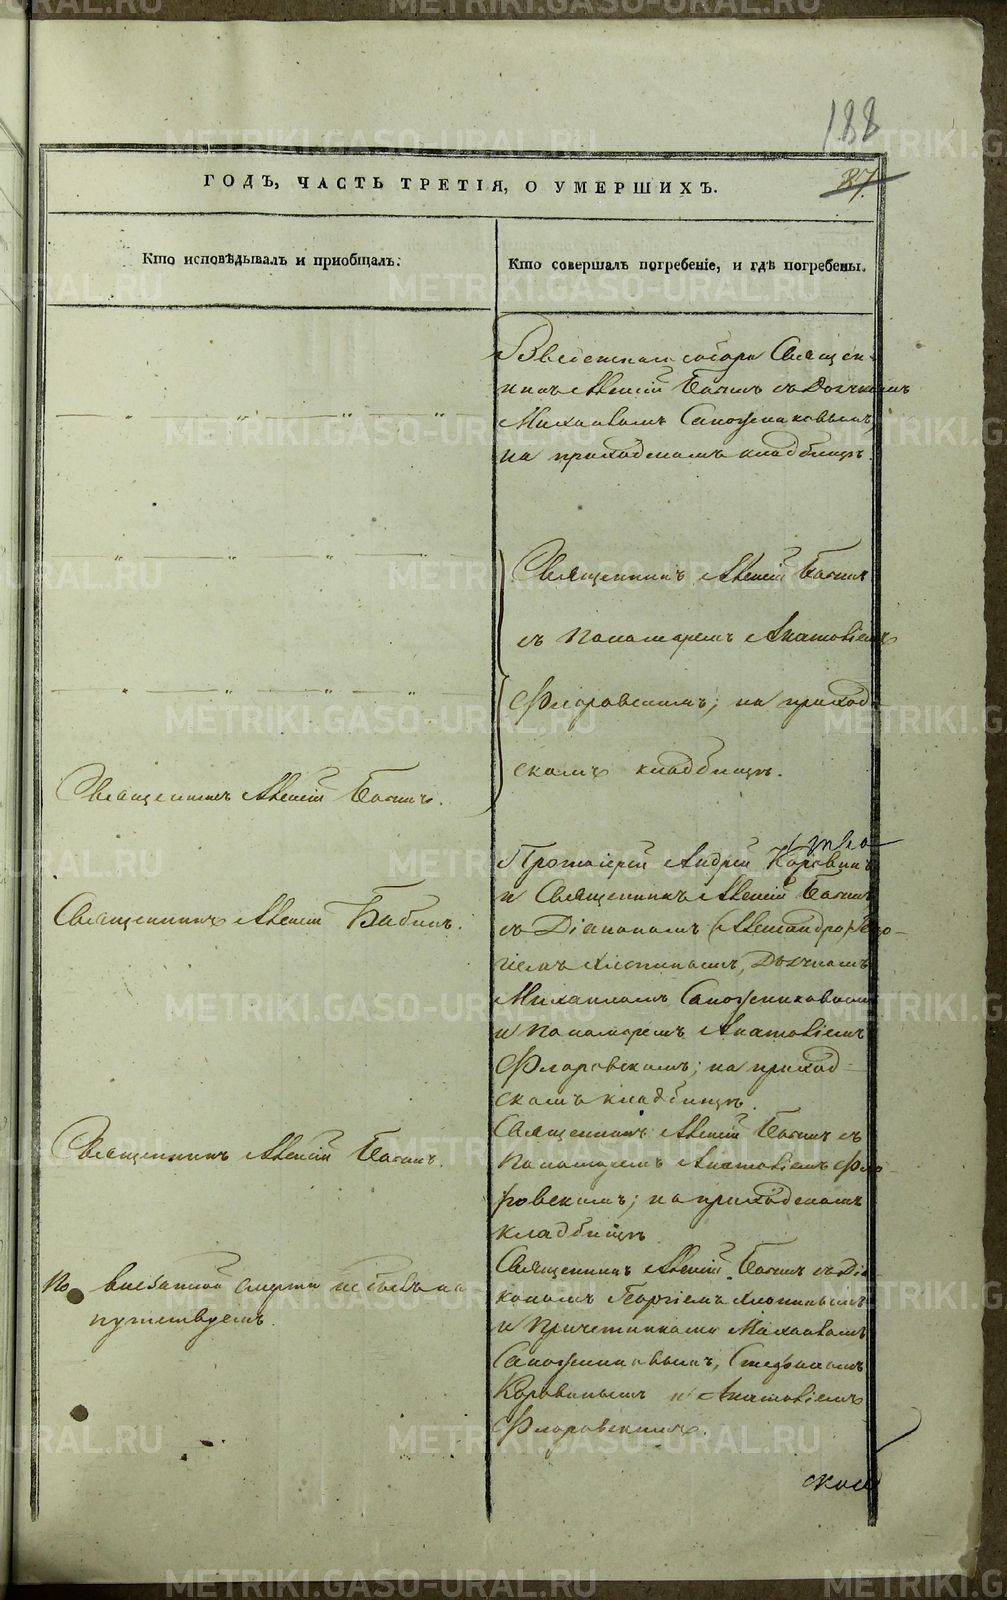 METRIKI.GASO-URAL.RU
188
87
ГОДЪ, ЧАСТЬ ТРЕТІЯ, О УМЕРШИХЪ.
Кто исповѣдывалъ и приобщалъ.
Кто совершалъ погребеніе, и гдѣ погребены.
Введенскаго собора Священ-
никъ Алексій Бабинъ съ Дьячкомъ
Михаиломъ Сапожниковымъ,
на приходскомъ кладбищѣ.
Священникъ Алексій Бабинъ
съ Пономаремъ Анатоліемъ
Флоровскимъ; на приход-
скомъ кладбищѣ.
Священникъ Алексій Бабинъ.
Протоіерей Андрей Коровинъ
и Священникъ Алексій Бабинъ
съ Діакономъ (Александро) Геор-
гіемъ Хлопинымъ, Дьячкомъ
Михаиломъ Сапожниковымъ
и Пономаремъ Анатоліемъ
Флоровскимъ; на приход-
скомъ кладбищѣ.
Священникъ Алексій Бабинъ.
Священникъ Алексій Бабинъ съ
Пономаремъ Анатоліемъ Фло-
ровскимъ; на приходскомъ
кладбищѣ
Священникъ Алексій Бабинъ.
Священникъ Алексій Бабинъ съ Діа-
кономъ Георгіемъ Хлопинымъ
и Причетниками Михаиломъ
Сапожниковымъ, Стефаномъ
Коровинымъ и Анатоліемъ
Флоровскимъ.
По внезапной смерти не былъ на
путствуемъ.